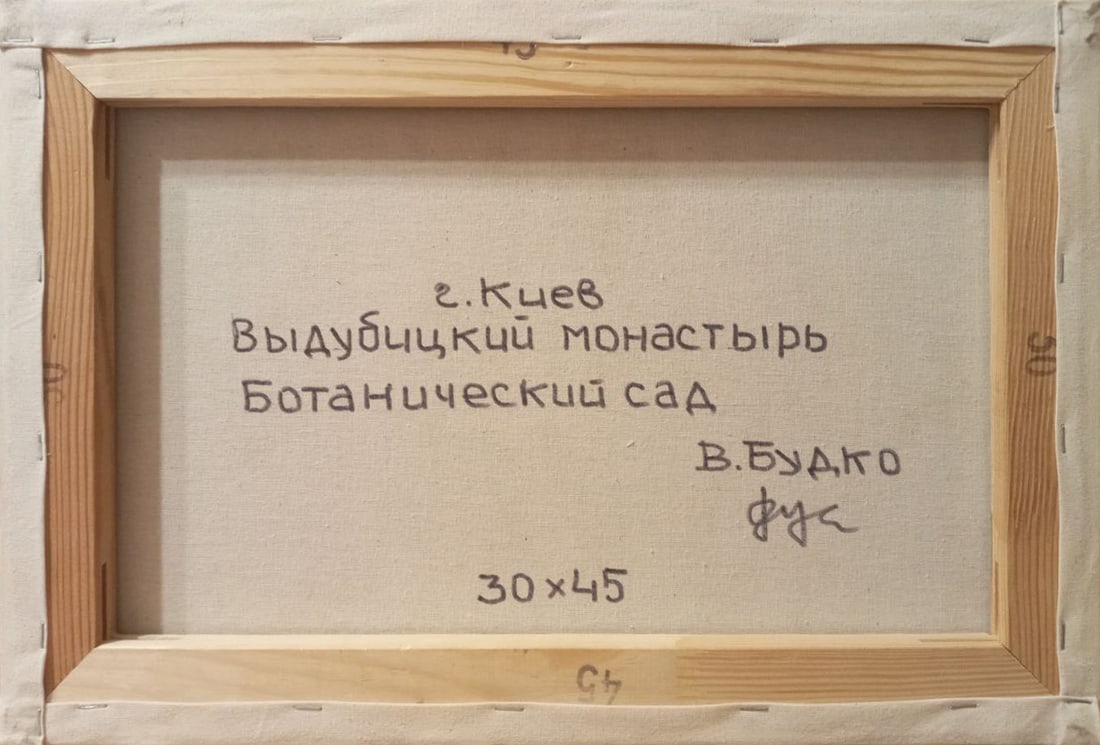 г. Киев
Выдубицкий монастырь
Ботанический сад
В. Будко
30х45
45
30